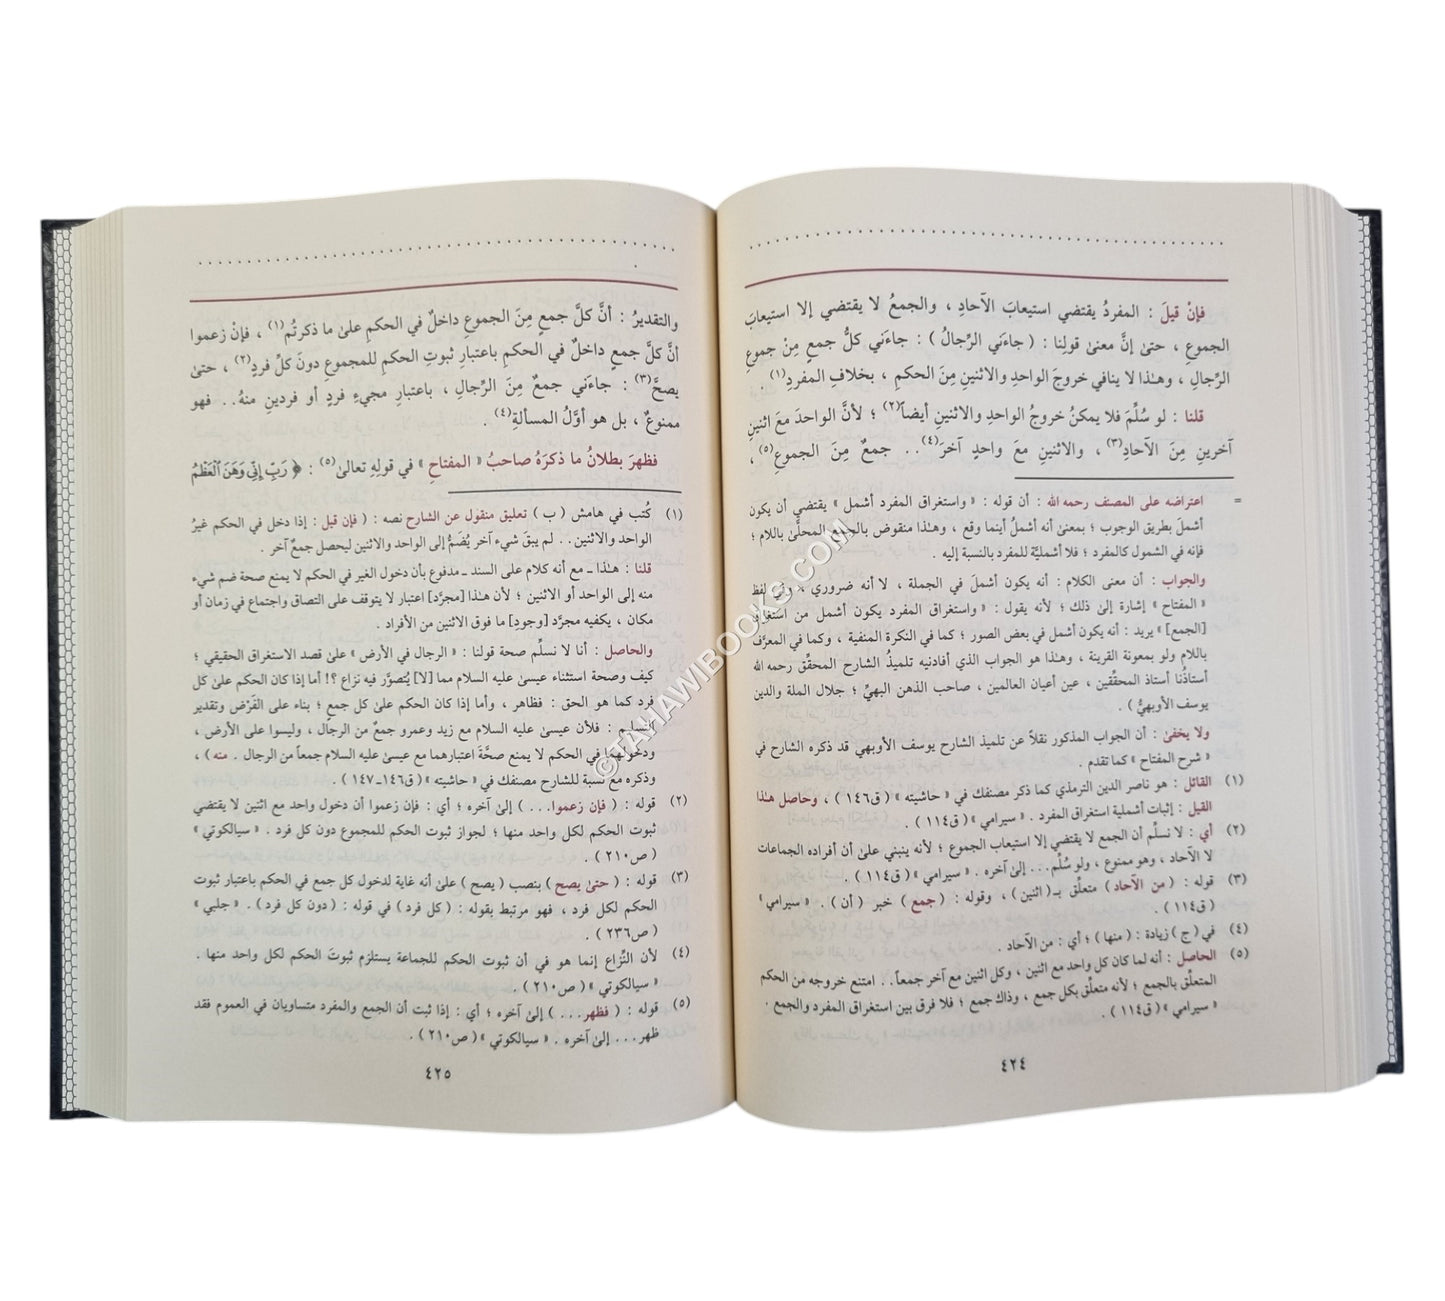 فإنْ قيلَ : المفردُ يقتضي استيعابَ الآحادِ ، والجمعُ لا يقتضي إلا استيعابَ
الجموعِ ، حتىٰ إنَّ معنىٰ قولِنا : ( جاءَني الرِّجالُ ) : جاءَني كلُّ جمعٍ مِنْ جموعِ
الرِّجالِ ، وهـٰذا لا ينافي خروجَ الواحدِ والاثنينِ مِنَ الحكمِ ، بخلافِ المفردِ(١) .
قلنا : لو سُلِّمَ فلا يمكنُ خروجُ الواحدِ والاثنينِ أيضاً(٢) ؛ لأنَّ الواحدَ معَ اثنينِ
آخرينِ مِنَ الآحادِ(٣) ، والاثنينِ معَ واحدٍ آخرَ(٤) . . جمعٌ مِنَ الجموعِ(٥) ،
= اعتراضه على المصنف رحمه الله : أن قوله : « واستغراق المفرد أشمل » يقتضي أن يكون
أشملَ بطريق الوجوب ؛ بمعنىٰ أنه أشملُ أينما وقع ، وهـٰذا منقوض بالجمع المحلَّىٰ باللام ؛
فإنه في الشمول كالمفرد ؛ فلا أشمليَّة للمفرد بالنسبة إليه .
والجواب : أن معنى الكلام : أنه يكون أشملَ في الجملة ، لا أنه ضروري ، وفي لفظ
« المفتاح » إشارة إلىٰ ذلك ؛ لأنه يقول : « واستغراق المفرد يكون أشمل من استغراق
[الجمع] » يريد : أنه يكون أشمل في بعض الصور ؛ كما في النكرة المنفية ، وكما في المعرَّف
باللام ولو بمعونة القرينة ، وهـٰذا هو الجواب الذي أفادنيه تلميذُ الشارح المحقِّق رحمه الله
أستاذُنا أستاذ المحقِّقين ، عين أعيان العالمين ، صاحب الذهن البهيِّ ؛ جلال الملة والدين
يوسف الأوبهيُّ ) .
ولا يخفىٰ : أن الجواب المذكور نقلاً عن تلميذ الشارح يوسف الأوبهي قد ذكره الشارح في
« شرح المفتاح » كما تقدم .
(١) القائل : هو ناصر الدين الترمذي كما ذكر مصنفك في « حاشيته » ( ق١٤٦ ) ، وحاصل هـٰذا
القيل : إثبات أشملية استغراق المفرد . « سيرامي » ( ق١١٤ ) .
(٢) أي : لا نسلِّم أن الجمع لا يقتضي إلا استيعاب الجموع ؛ لأنه ينبني علىٰ أن أفراده الجماعات
لا الآحاد ، وهو ممنوع ، ولو سُلِّم . . . إلىٰ آخره . « سيرامي » ( ق١١٤ ) .
(٣) قوله : ( من الآحاد ) متعلِّق بـ( اثنين ) ، وقوله : ( جمع ) خبر ( أن ) . « سيرامي »
( ق١١٤ ) .
(٤) في ( ج ) زيادة : ( منها ) ؛ أي : من الآحاد .
(٥) الحاصل : أنه لما كان كل واحد مع اثنين ، وكل اثنين مع آخر جمعاً . . امتنع خروجه من الحكم
المتعلِّق بالجمع ؛ لأنه متعلِّق بكل جمع ، وذاك جمع ؛ فلا فرق بين استغراق المفرد والجمع .
« سيرامي » ( ق١١٤ ) .
٤٢٤
والتقديرُ : أنَّ كلَّ جمعٍ مِنَ الجموعِ داخلٌ في الحكمِ علىٰ ما ذكرتُم(١) ، فإنْ زعموا
أنَّ كلَّ جمعٍ داخلٌ في الحكمِ باعتبارِ ثبوتِ الحكمِ للمجموعِ دونَ كلِّ فردٍ(٢) ، حتىٰ
يصحَّ(٣) : جاءَني جمعٌ مِنَ الرِّجالِ ، باعتبارِ مجيءِ فردٍ أو فردينِ منهُ . . فهو
ممنوعٌ ، بل هو أوَّلُ المسألةِ(٤) .
فظهرَ بطلانُ ما ذكرَهُ صاحبُ « المفتاحِ » في قولِهِ تعالىٰ(٥) : ﴿ رَبِّ إِنِّي وَهَنَ ٱلْعَظْمُ
(١) كُتب في هامش ( ب ) تعليق منقول عن الشارح نصه : ( فإن قيل : إذا دخل في الحكم غيرُ
الواحد والاثنين . . لم يبقَ شيء آخر يُضَمُّ إلى الواحد والاثنين ليحصل جمعٌ آخر .
قلنا : هـٰذا ـ مع أنه كلام على السند ـ مدفوع بأن دخول الغير في الحكم لا يمنع صحة ضم شيء
منه إلى الواحد أو الاثنين ؛ لأن هـٰذا [مجرَّد] اعتبار لا يتوقف على التصاق واجتماع في زمان أو
مكان ، يكفيه مجرَّد [وجودِ] ما فوق الاثنين من الأفراد .
والحاصل : أنا لا نسلِّم صحة قولنا : « الرجال في الأرض » علىٰ قصد الاستغراق الحقيقي ؛
كيف وصحة استثناء عيسىٰ عليه السلام مما [لا] يُتصوَّر فيه نزاع ؟! أما إذا كان الحكم علىٰ كل
فرد كما هو الحق : فظاهر ، وأما إذا كان الحكم علىٰ كل جمعٍ ؛ بناء على الفَرْض وتقدير
التسليم : فلأن عيسىٰ عليه السلام مع زيد وعمرو جمعٌ من الرجال ، وليسوا على الأرض ،
ودخولهما في الحكم لا يمنع صحَّةَ اعتبارهما مع عيسىٰ عليه السلام جمعاً من الرجال . منه ) ،
وذكره مع نسبة للشارح مصنفك في « حاشيته » ( ق١٤٦-١٤٧ ) .
(٢) قوله : ( فإن زعموا . . . ) إلىٰ آخره ؛ أي : فإن زعموا أن دخول واحد مع اثنين لا يقتضي
ثبوت الحكم لكل واحد منها ؛ لجواز ثبوت الحكم للمجموع دون كل فرد . « سيالكوتي »
( ص٢١٠ ) .
(٣) قوله : ( حتىٰ يصح ) بنصب ( يصح ) علىٰ أنه غاية لدخول كل جمع في الحكم باعتبار ثبوت
الحكم لكل فرد ، فهو مرتبط بقوله : ( كل فرد ) في قوله : ( دون كل فرد ) . « جلبي »
( ص٢٣٦ ) .
(٤) لأن النِّزاع إنما هو في أن ثبوت الحكم للجماعة يستلزم ثبوتَ الحكم لكل واحد منها .
« سيالكوتي » ( ص٢١٠ ) .
(٥) قوله : ( فظهر . . . ) إلىٰ آخره ؛ أي : إذا ثبت أن الجمع والمفرد متساويان في العموم فقد
ظهر . . . إلىٰ آخره . « سيالكوتي » ( ص٢١٠ ) .
٤٢٥
©TAHAWIBOOKS.COM